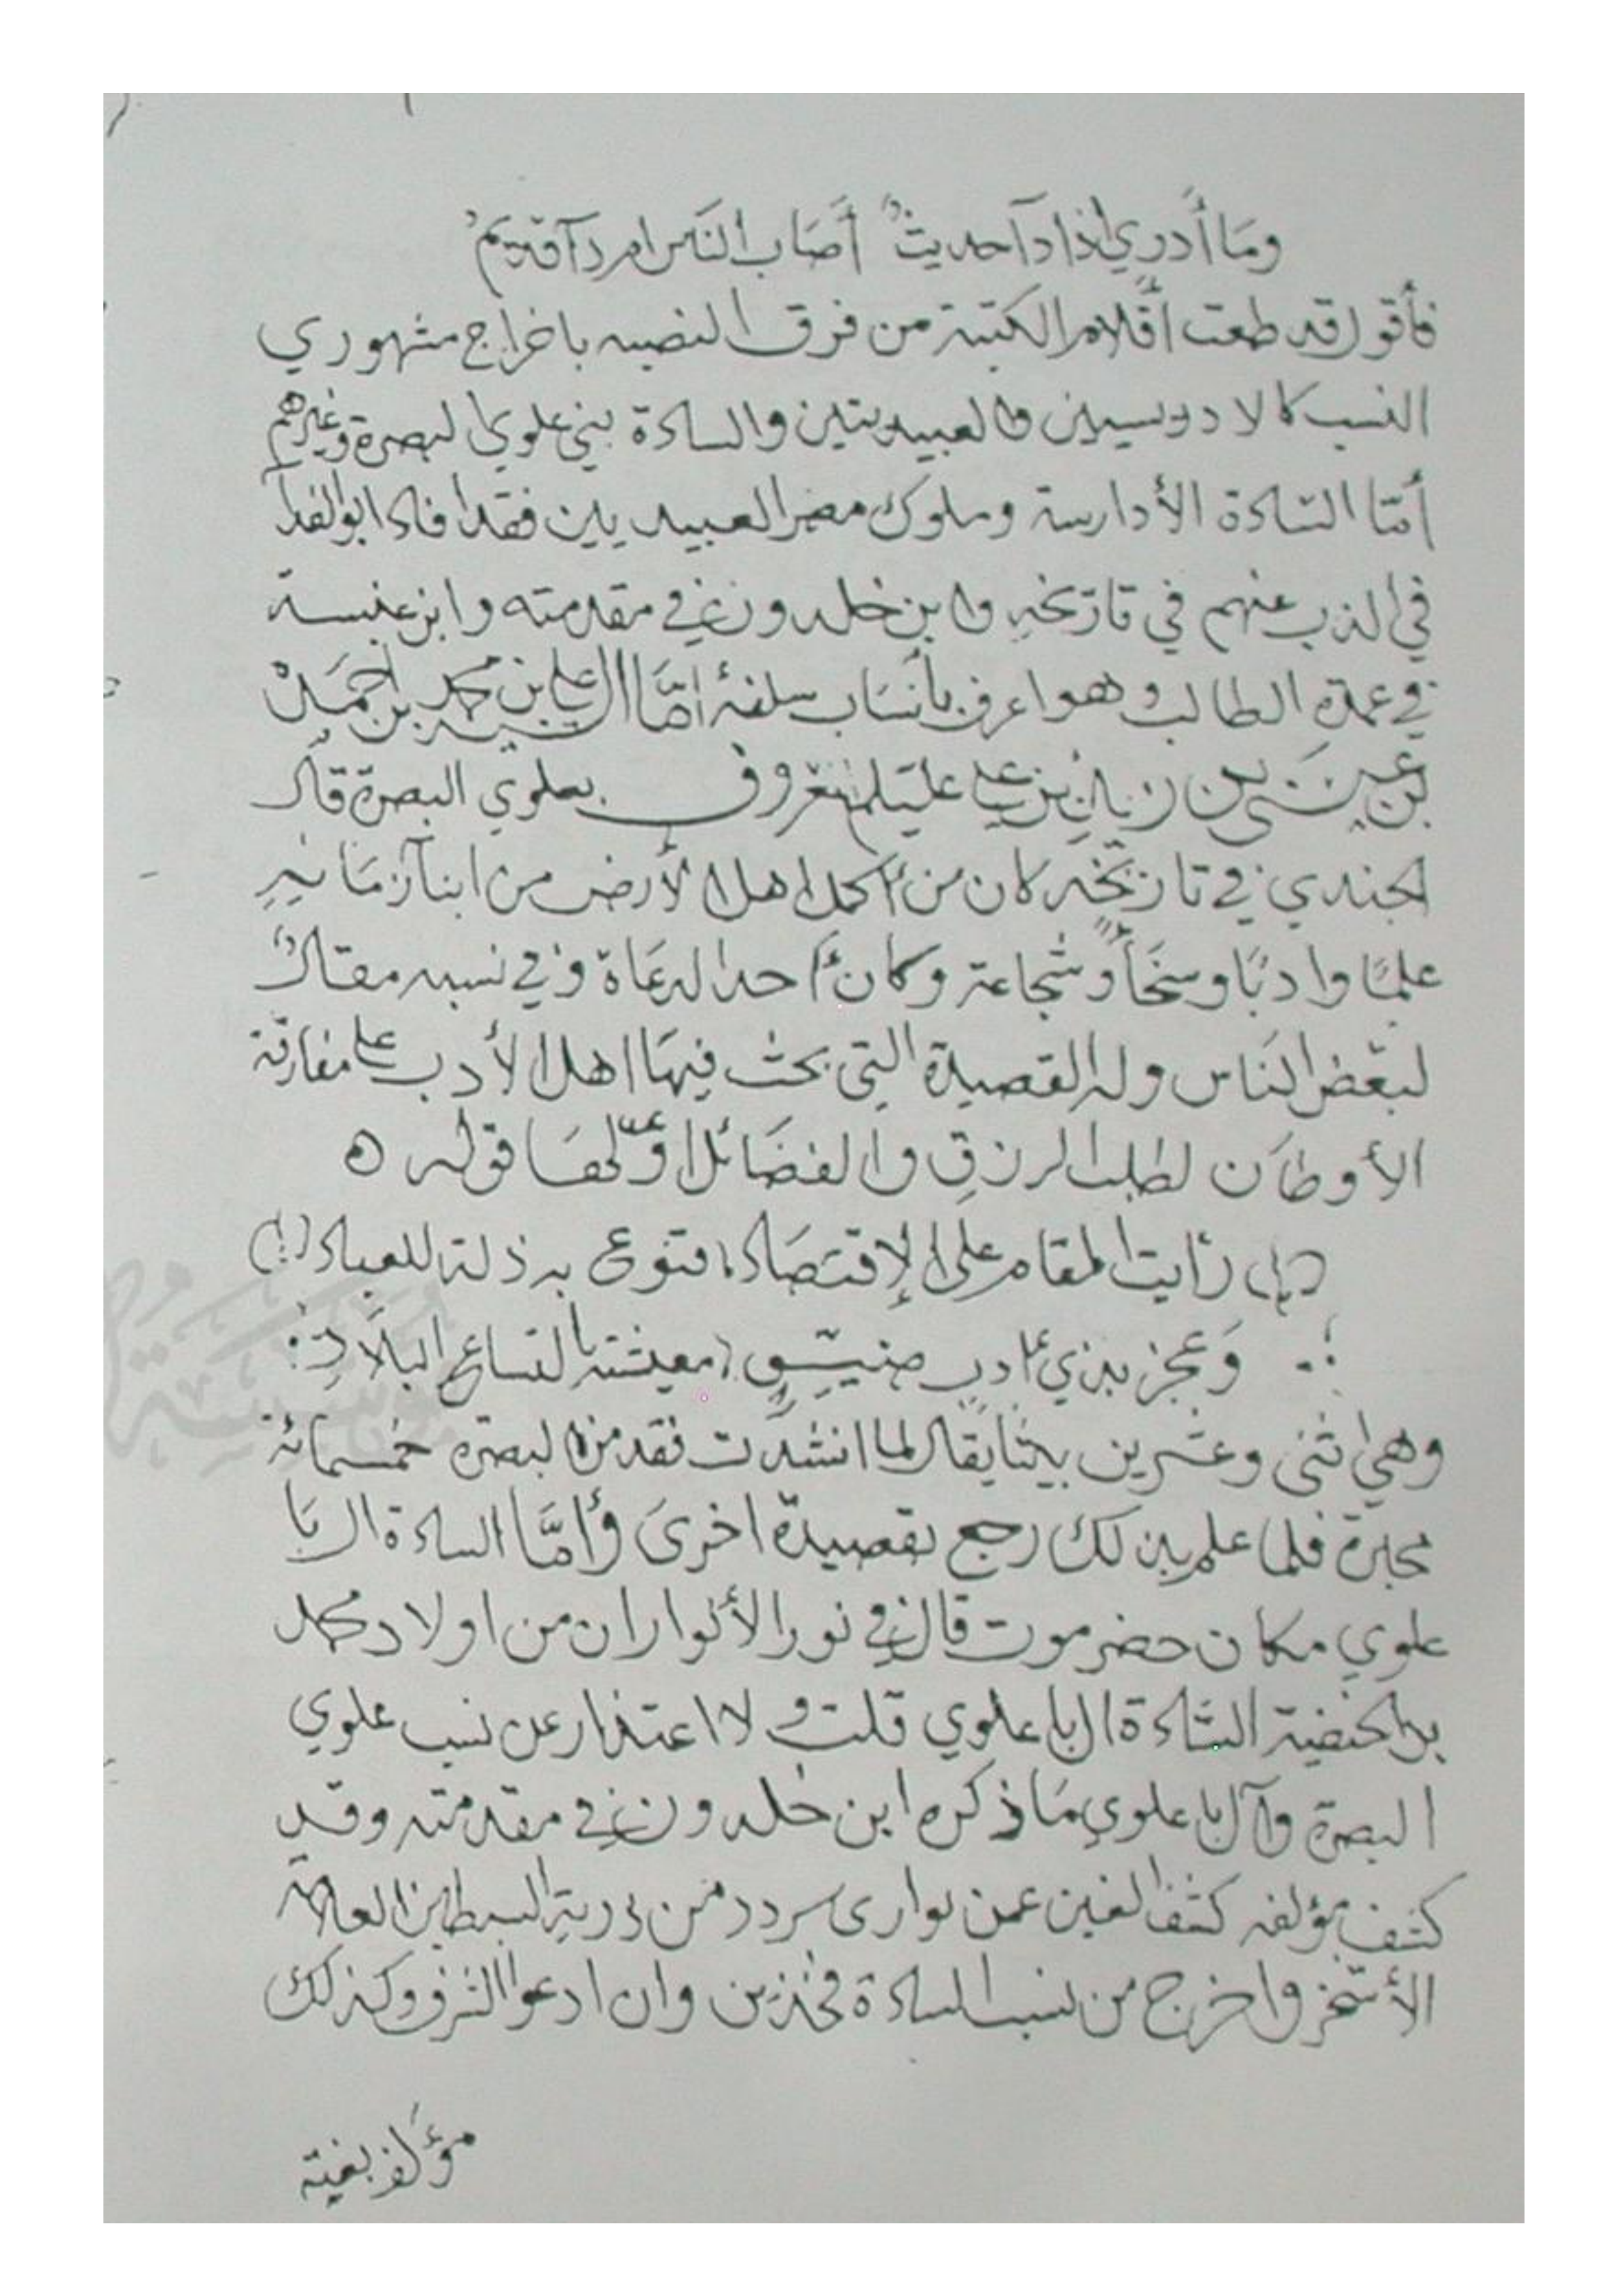 وما أدري إذا دآ حديث أصاب الناس ام دآ قديم
فأقول قد طعت أقلام الكتبة من فرق النصبه باخراج مشهوري
النسب كالادريسيين والعبيديين والسادة بني علوي البصرة وغيرهم
أمّا السّادة الأدارسة وملوك مصر العبيديين فقد افاد ابو الفدآ
في الذب عنهم في تاريخه وابن خلدون في مقدمته وابن عنبسة
في عمدة الطالب وهو اعرف بأنساب سلفه امّا علي بن محمد بن احمد
بن عيسى بن زيد بن علي عليهم المعروف بعلوي البصرة قال
الجندي في تاريخه كان من أكمل اهل الأرض من ابنآء زمانه
علمًا وادبًا وسخآً وشجاعة وكان أحد الدعاة وفي نسبه مقال
لبعض الناس وله القصيدة التي بحث فيها اهل الأدب على مفارقة
الأوطان لطلب الرزق والفضائل اوّلها قوله ه
رأيت المقام على الإقتصاد قنوع به ذلة للعباد
وعجز بذي أدب معيشته اتساع البلاد
وهي اثنى وعشرين بيتًا يقال لما انشدت فقد من البصرة خمسمائة
محبرة فلما علم بذلك رجع بقصيدة اخرى وأمّا السادة ال با
علوي مكان حضرموت قال في نور الأنوار ان من اولاد محمد
بن الحنفية السّادة ال با علوي قلت والاعتذار عن نسب علوي
البصرة وآل با علوي ما ذكره ابن خلدون في مقدمته وقد
كشف مؤلفه كشف الغين عمن بوادى سردد من ذرية السبطين العلامة
الأشخر واخرج من نسب السادة وان ادعوا الشرف وكذلك
مؤلف بغية